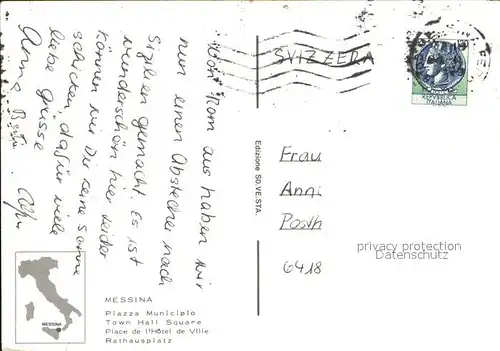 Von Rom aus haben wir
nun einen Abstecher nach
Sizilien gemacht. Es ist
wunderschön hier leider
können wir Dir keine Sonne
schicken, dafür viele
liebe Grüsse
Anna
SVIZZERA
REPVBBLICA
ITALIANA
Edizione SO.VE.STA.
Frau
Anni
Posth
6418
privacy protection
Datenschutz
MESSINA
MESSINA
Piazza Municipio
Town Hall Square
Place de l'Hôtel de Ville
Rathausplatz